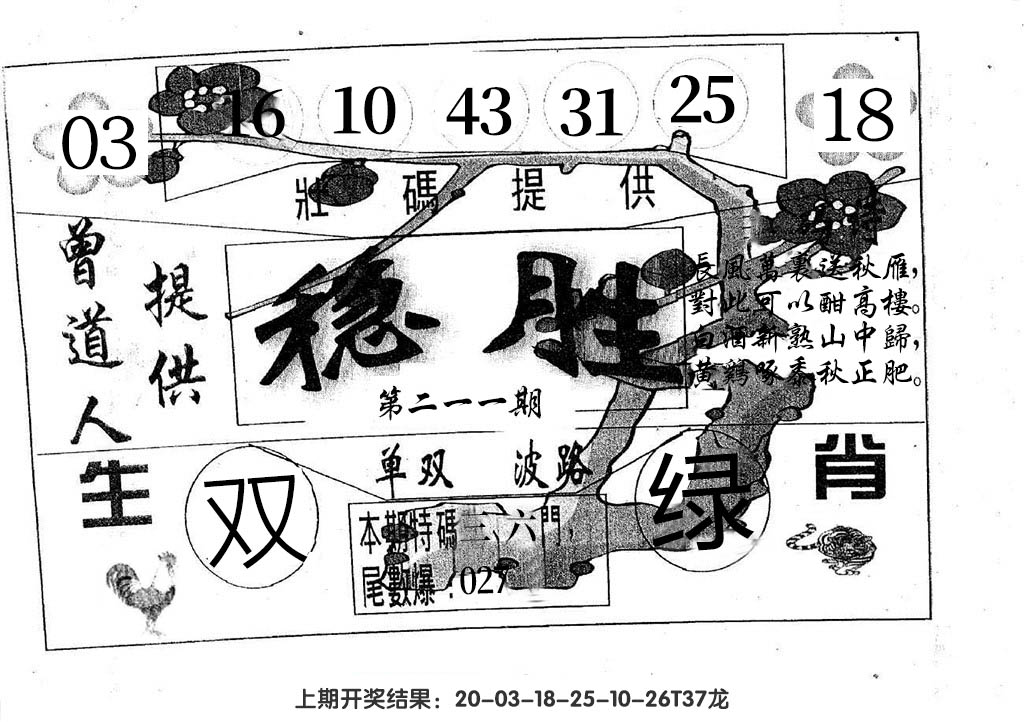 03 16 10 43 31 25 18
壯碼提供
曾道人
提供
稳胜
第二一一期
特
長風萬裏送秋雁，
對此可以酣高樓。
白酒新熟山中歸，
黄鷄啄黍秋正肥。
单双 波路
生肖
双
绿
本期特碼三、六門，
尾數爆：027
上期开奖结果：20-03-18-25-10-26T37龙